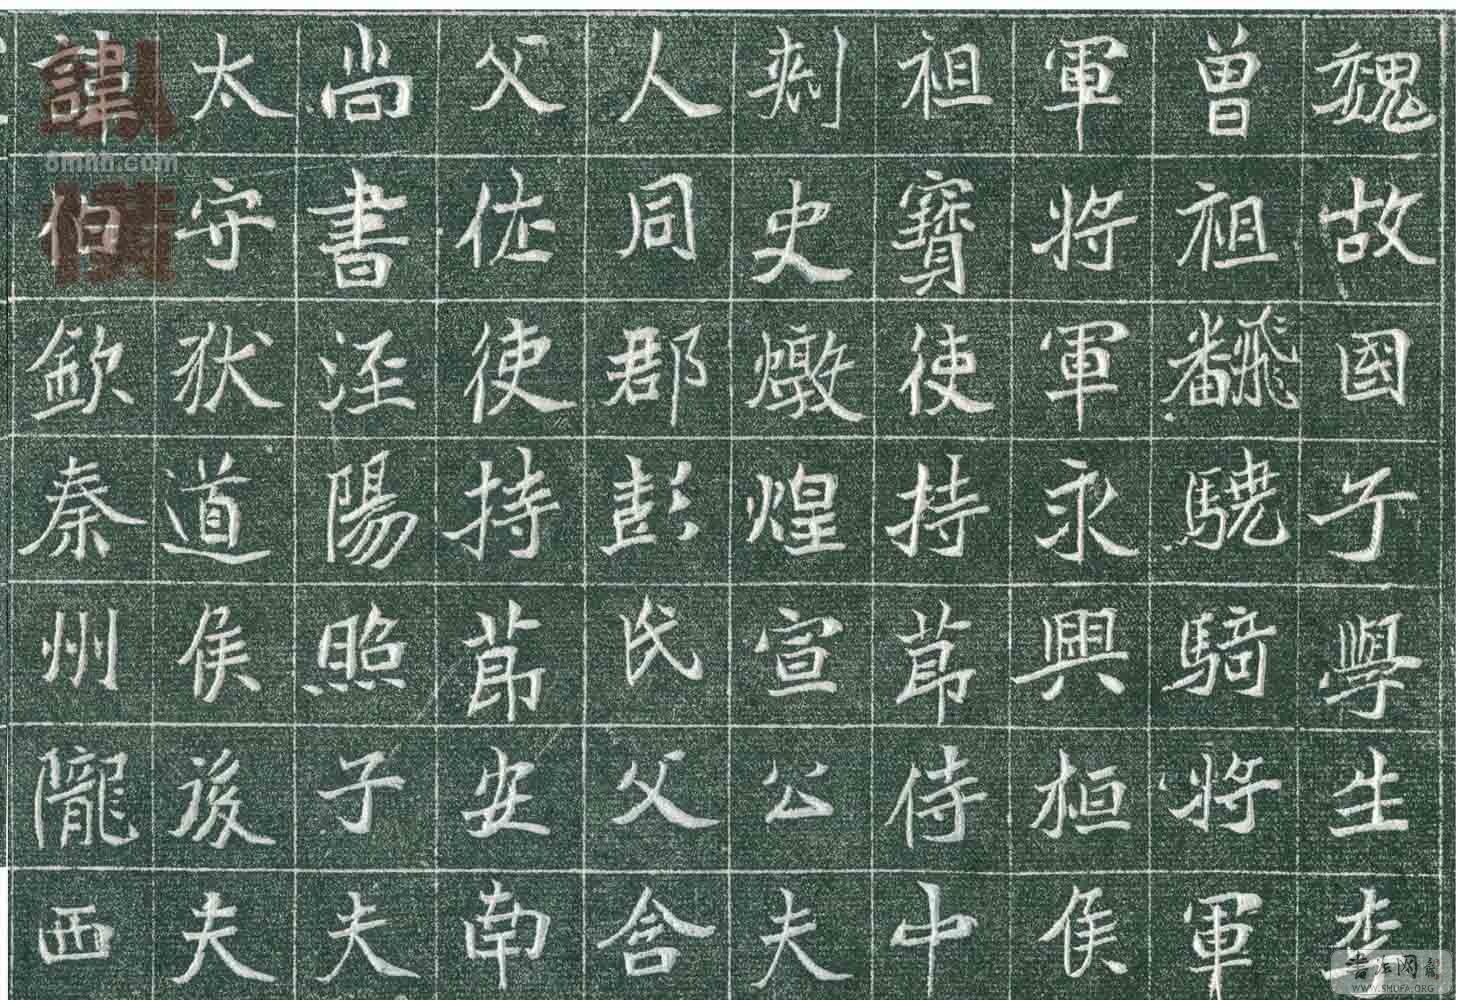 魏故國子學生李
曾祖飜驍騎將軍
軍將軍永興桓侯
祖寶使持節侍中
刺史燉煌宣公夫
人同郡彭氏父含
父佐使持節安南
尚書涇陽照子夫
太守狄道侯後夫
諱伯欽秦州隴西
書法网
WWW.SHUFA.ORG